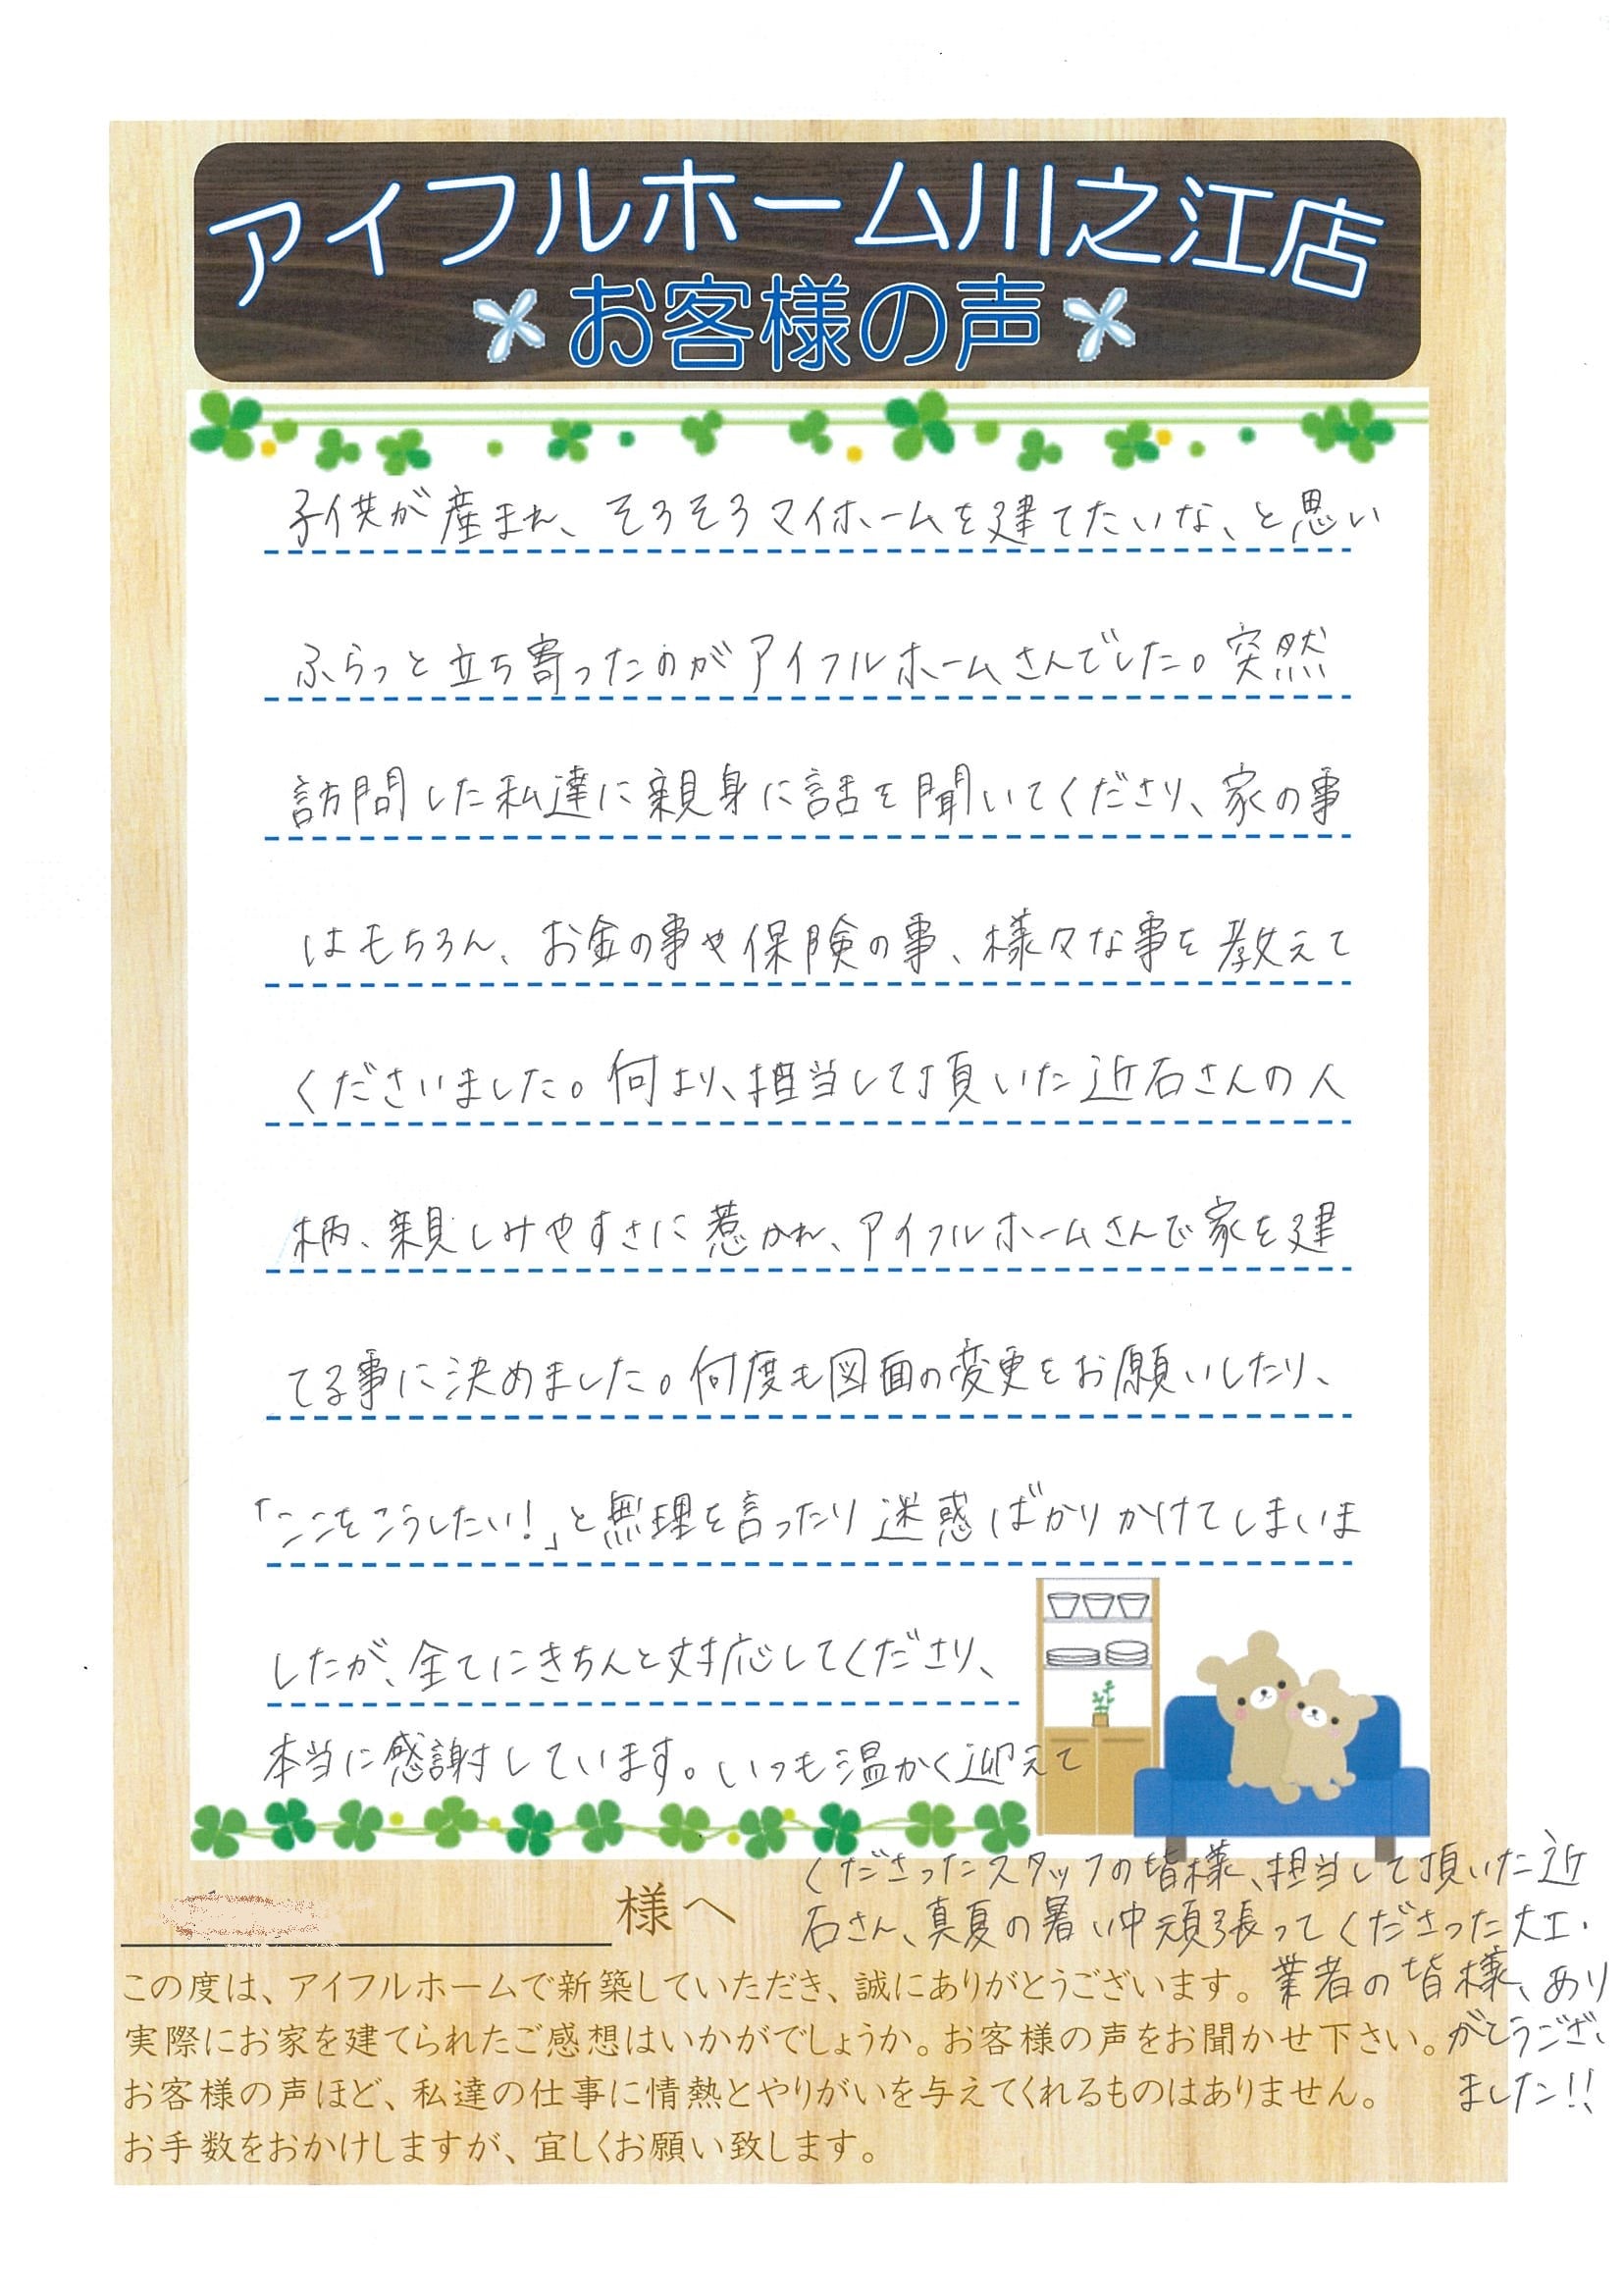 アイフルホーム川之江店
お客様の声
子供が産まれ、そろそろマイホームを建てたいな、と思い
ふらっと立ち寄ったのがアイフルホームさんでした。突然
訪問した私達に親身に話を聞いてくださり、家の事
はもちろん、お金の事や保険の事、様々な事を教えて
くださいました。何より、担当して頂いた近石さんの人
柄、親しみやすさに惹かれ、アイフルホームさんで家を建
てる事に決めました。何度も図面の変更をお願いしたり、
「ここをこうしたい!」と無理を言ったり迷惑ばかりかけてしまいま
したが、全てにきちんと対応してくださり、
本当に感謝しています。いつも温かく迎えて
くださったスタッフの皆様、担当して頂いた近
石さん、真夏の暑い中頑張ってくださった大工・
業者の皆様、あり
がとうござい
ました!!
様へ
この度は、アイフルホームで新築していただき、誠にありがとうございます。
実際にお家を建てられたご感想はいかがでしょうか。お客様の声をお聞かせ下さい。
お客様の声ほど、私達の仕事に情熱とやりがいを与えてくれるものはありません。
お手数をおかけしますが、宜しくお願い致します。